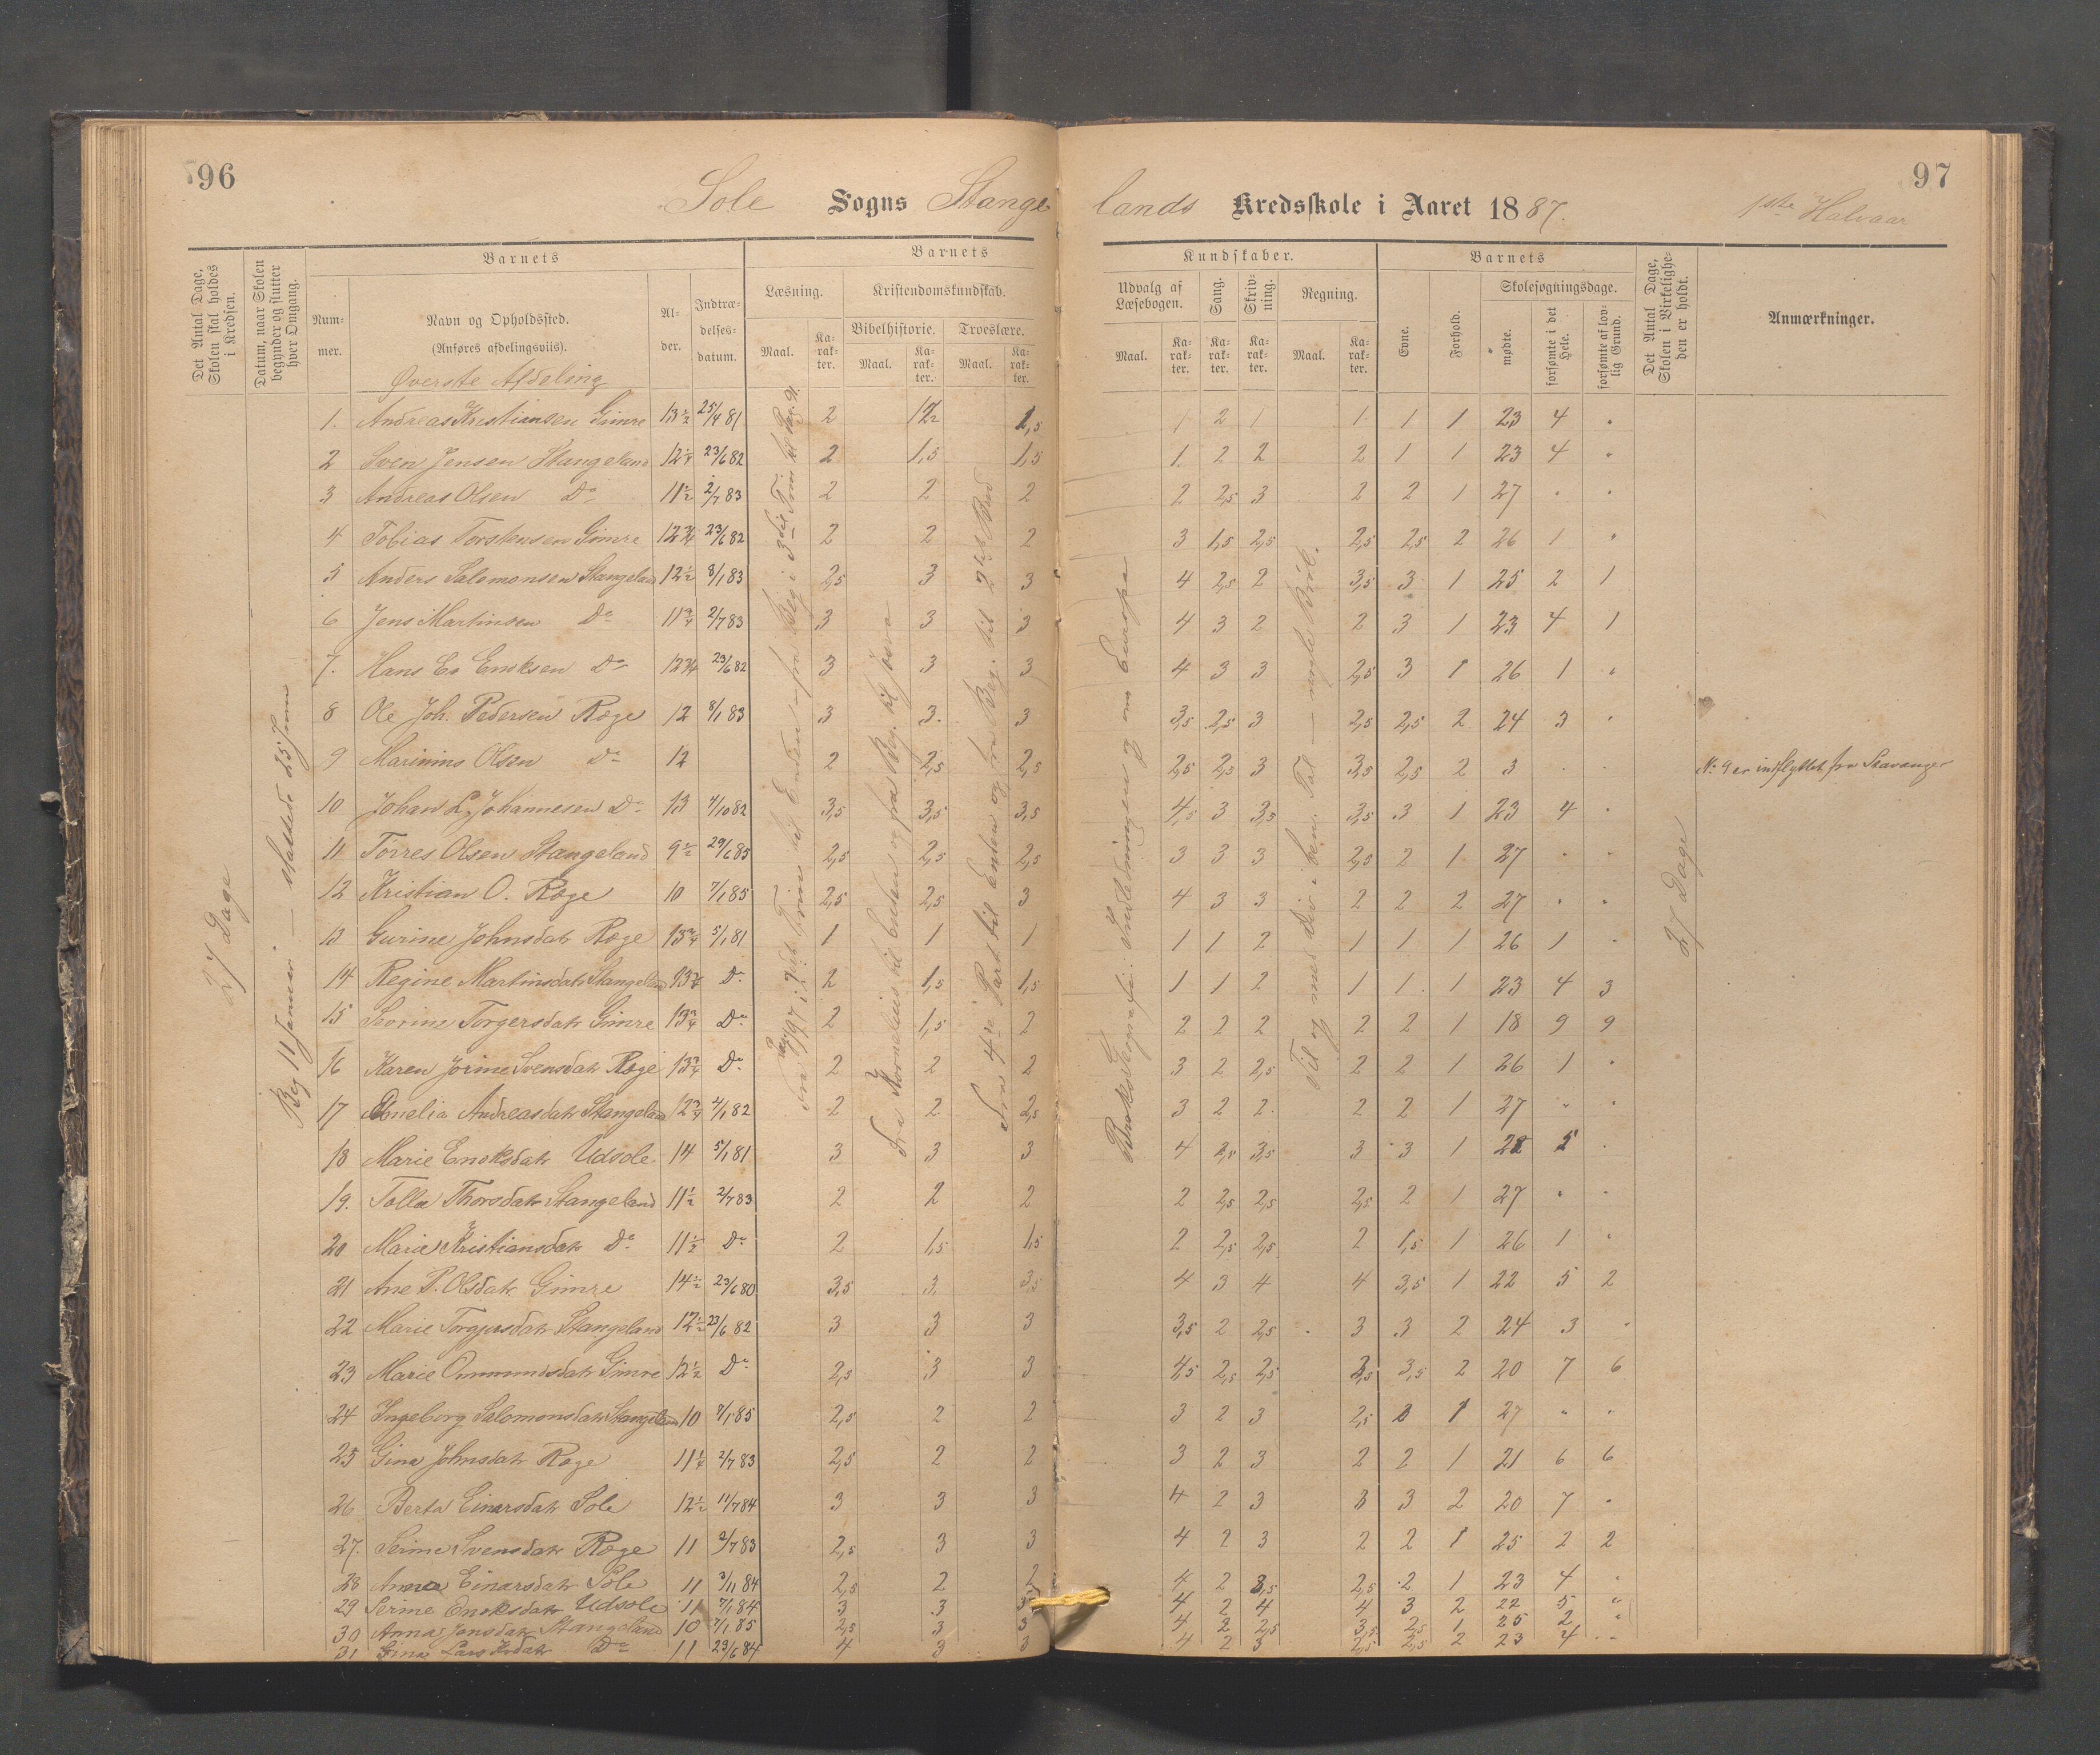 96
97
Sole Sogns Stangelands Kredsskole i Aaret 1887. 1ste Halvaar
Det Antal Dage, Skolen skal holdes i Kredsen.
Datum, naar Skolen begynder og slutter hver Omgang.
Barnets
Nummer.
Navn og Opholdssted.
(Anføres afdelingsviis).
Alder.
Indtrædelsesdatum.
Barnets Kundskaber.
Læsning.
Maal. Karakter.
Kristendomskundskab.
Bibelhistorie. Troeslære.
Maal. Karakter. Maal. Karakter.
Udvalg af Læsebogen.
Maal. Karakter.
Sang. Karakter.
Skrivning. Karakter.
Regning.
Maal. Karakter.
Barnets
Evne. Forhold.
Skolesøgningsdage.
mødte. forsømte i det Hele. forsømte af lovlig Grund.
Det Antal Dage, Skolen i Virkeligheden er holdt.
Anmærkninger.
27 Dage
Beg 11 Januar — sluttede 25 Juni
Øverste Afdeling
1. Andreas Kristiansen Gimre 13 1/2 25/4 81 2 1 2 1 1 1 1 23 4 "
2 Sven Jensen Stangeland 12 1/4 23/6 82 2 1,5 1,5 1 2 2 2 1 1 23 4 "
3 Andreas Olsen Do 11 1/2 2/7 83 2 2 2 2 2,5 3 2 2 1 27 " "
4 Tobias Torstensen Gimre 12 3/4 23/6 82 2 2 2 3 1,5 2,5 2,5 2,5 2 26 1 "
5 Anders Salomonsen Stangeland 12 1/2 8/1 83 2,5 3 3 4 2,5 2 3,5 3 1 25 2 1
6 Jens Martinsen Do 11 3/4 2/7 83 3 3 3 4 3 2 2 3 1 23 4 1
7. Hans Ed Enoksen Do 12 3/4 23/6 82 3 3 3 4 3 3 2,5 3 1 26 1 "
8 Ole Joh. Pedersen Ræge 12 8/1 83 3 3 3 3,5 2,5 3 2,5 2,5 2 24 3 "
9 Marinius Olsen Do 12 2 2,5 2,5 2,5 2,5 3 3,5 2,5 2 3 " " No 9 er indflyttet fra Stavanger
10 Johan L. Johannesen Do 13 4/10 82 3,5 3,5 3,5 4,5 3 3,5 3,5 3 1 23 4 "
11 Torres Olsen Stangeland 9 1/2 29/6 85 2,5 2,5 2,5 3 3 3 2,5 2 1 27 " "
12 Kristian O. Ræge 10 7/1 85 2,5 2,5 3 4 3 3 2 2 2 27 " "
13 Gurine Johnsdatr Ræge 13 3/4 5/1 81 1 1 1 1 1 2 1 1 1 26 1 "
14 Regine Martinsdatr Stangeland 13 3/4 Do 2 1,5 1,5 1 1 2 1 1 1 23 4 3
15 Severine Torgersdatr Gimre 13 3/4 Do 2 1,5 2 2 2 2 2 2 1 18 9 9
16 Karen Jorine Svensdatr Ræge 13 3/4 Do 2 2 2 3 2 2,5 2 2 1 26 1 "
17 Amelia Andreasdatr Stangeland 12 3/4 4/1 82 2 2 2,5 3 2 2 2 2 1 27 " "
18 Marie Enoksdatr Udsole 14 5/1 81 3 3 3 4 2,5 3,5 3 3 1 22 5 "
19. Tolla Thorsdatr Stangeland 11 1/2 2/7 83 2 2 2 2 2,5 2,5 2,5 2 1 27 " "
20 Marie Kristiansdatr Do 11 1/2 Do 2 1,5 1,5 2 2,5 2,5 2 1,5 1 26 1 "
21 Ane P. Olsdatr Gimre 14 1/2 23/6 80 3,5 3 3,5 4 3 4 4 3,5 1 22 5 2
22 Marie Torgersdatr Stangeland 12 1/2 23/6 82 3 3 3 3,5 2 2,5 3 3 2 24 3 "
23 Marie Ommundsdatr Gimre 12 1/2 Do 2,5 3 3 4,5 2,5 2,5 3,5 3,5 2 20 7 6
24 Ingeborg Salomonsdatr Stangeland 10 7/1 85 2,5 2 2 3 2 3 2,5 3 1 27 " "
25 Gina Johnsdatr Ræge 11 1/4 2/7 83 2,5 2 2 3 2 3 2 2 1 21 6 6
26 Berta Einarsdatr Sole 12 1/2 11/7 84 3 3 3 4 2 3 3 3 2 20 7 "
27. Serine Svensdatr Ræge 11 2/7 83 2,5 3 3 4 2 3 2 2 1 25 2 2
28 Anna Einarsdatr Sole 11 3/11 84 2,5 2 2 4 2 3,5 2,5 2 1 23 4 "
29 Serine Enoksdatr Udsole 11 7/1 84 3 3 3 4 2 4 4 3 2 22 5 "
30 Anna Jensdatr Stangeland 10 7/1 85 2,5 3 3 4 2 2,5 3,5 2,5 1 25 2 "
31 Gina Larsdatr Do 11 23/6 84 4 3 3 4 2 3 2,5 2,5 2 23 4 "
Fra Pag 197 i 2det Trin til Enden og fra Beg. i 3die Trin til Pag 91.
Fra Kornelius til Enden og fra Beg. til Josva
Fra 4de Part til Enden og fra Beg. til 2det Bud
Geografi: Indledningen og om Europa
Til og med Div. i ben. Tal — nogle Brøk.
27 Dage